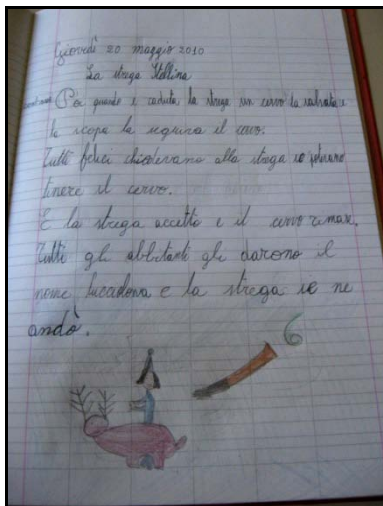 Giovedì 20 maggio 2010
La strega Stellina
Poi quando è caduta la strega un cervo la salvata e
la scopa la seguiva il cervo.
Tutti felici chiedevano alla strega se potevano
tenere il cervo.
E la strega accettò e il cervo rimase.
Tutti gli abbitanti gli darono il
nome e la strega se ne
andò.
6